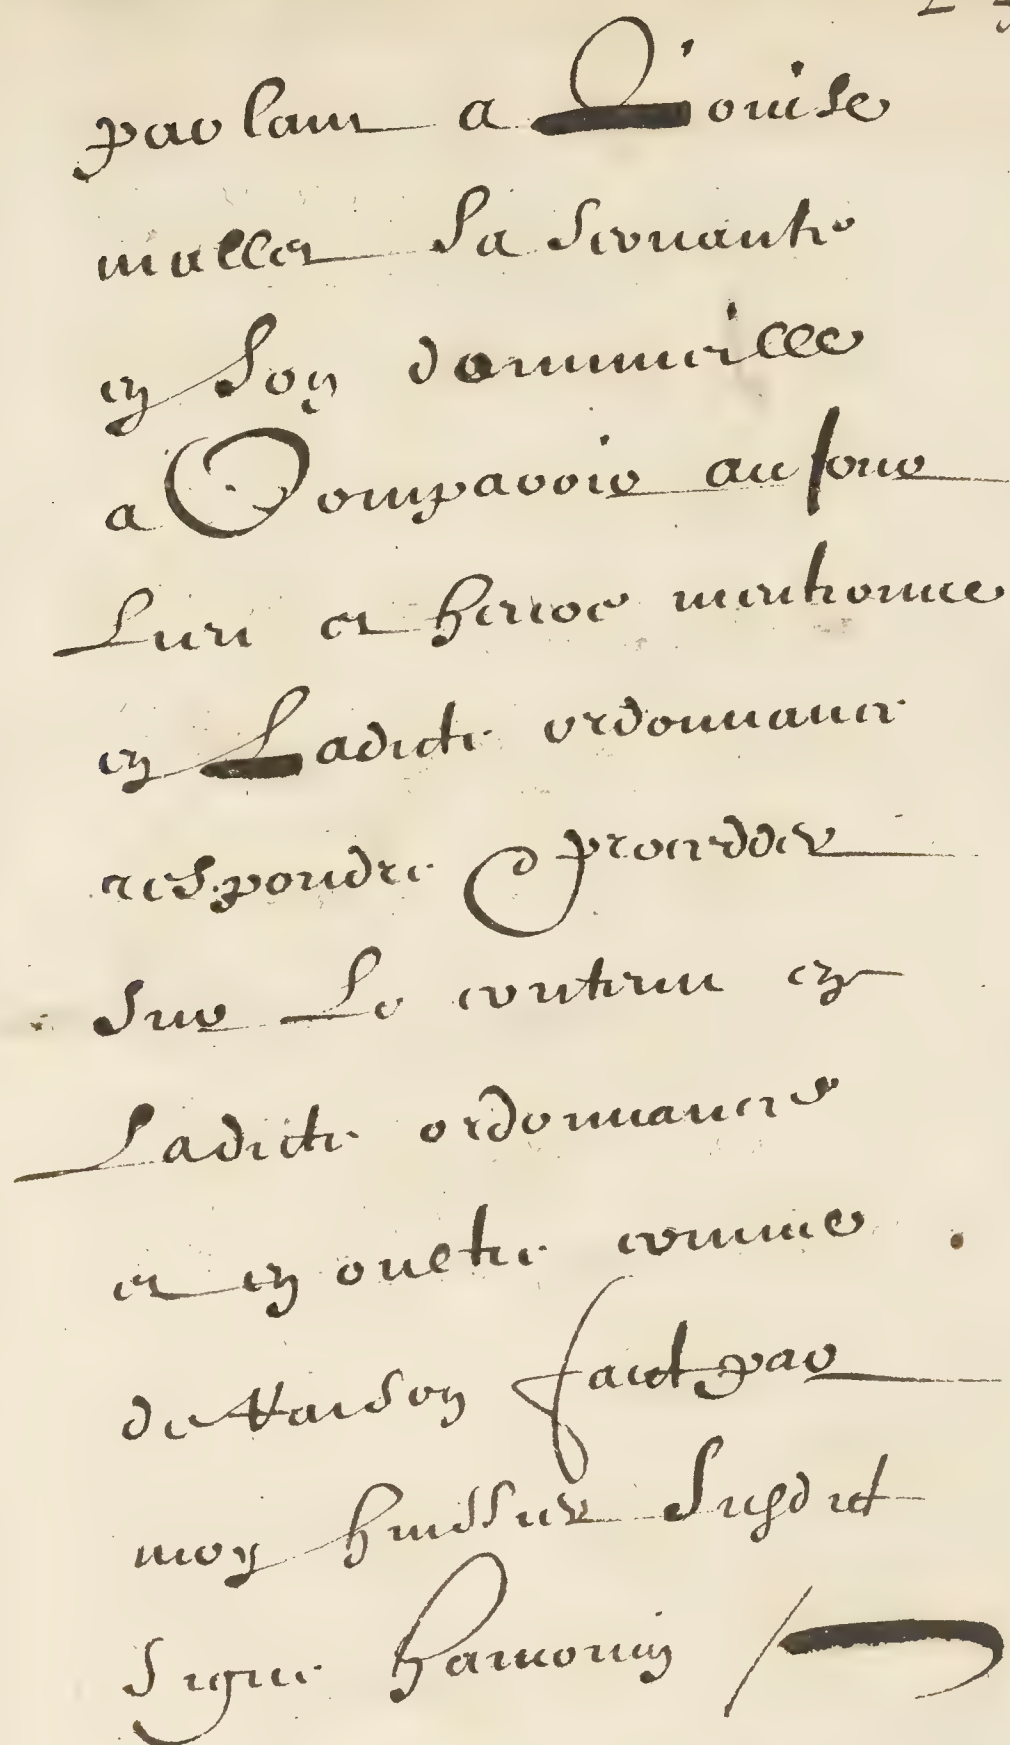 parlant a Louise
mullet sa servante
en son dommicille
a Comparoir au jour
lieu et heure mentionnee
en Ladicte ordonnance
respondre procedder
sur Le contenu en
Ladicte ordonnance
et en oultre comme
de raison faict par
moy huissier susdict
signe hamonin